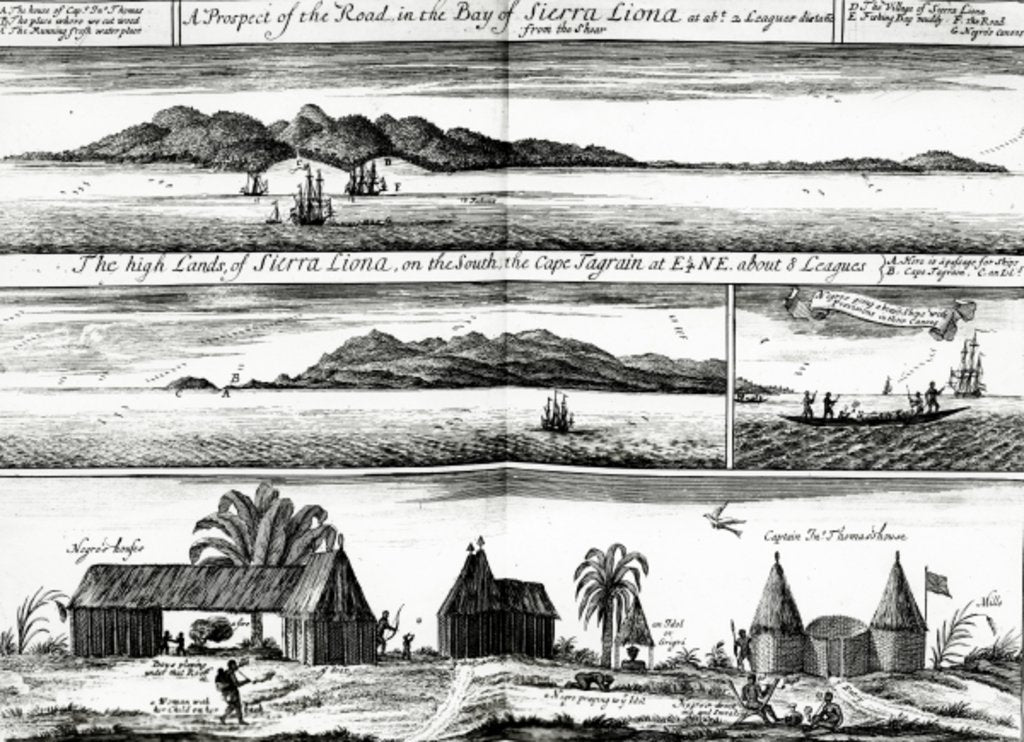 A. The house of Capt. Jno. Thomas
B. The place where we cut wood
C. The Running fresh water place
A Prospect of the Road in the Bay of Sierra Liona at abt. 2 Leagues distate
from the Shoar
D. The Village of Sierra Liona
E. Fishing Bay muddy. F. the Road
G. Negro's Canoos
C
B
F
The high Lands, of Sierra Liona, on the South, the Cape Tagrain at E¼NE. about 8 Leagues
A. Here is a passage for Ships
B. Cape Tagrain. C. an Isld.
Negro's going aboard Ships with
Provisions in their Canoos
B
C
A
Negro's houses
Captain Jno. Thomas's house
a fire
an Idol
or
Grigri
Mills
Boys playing
under that Roof
a Woman with
her Child on her
back
a Negro praying to ye Idol
Negro's